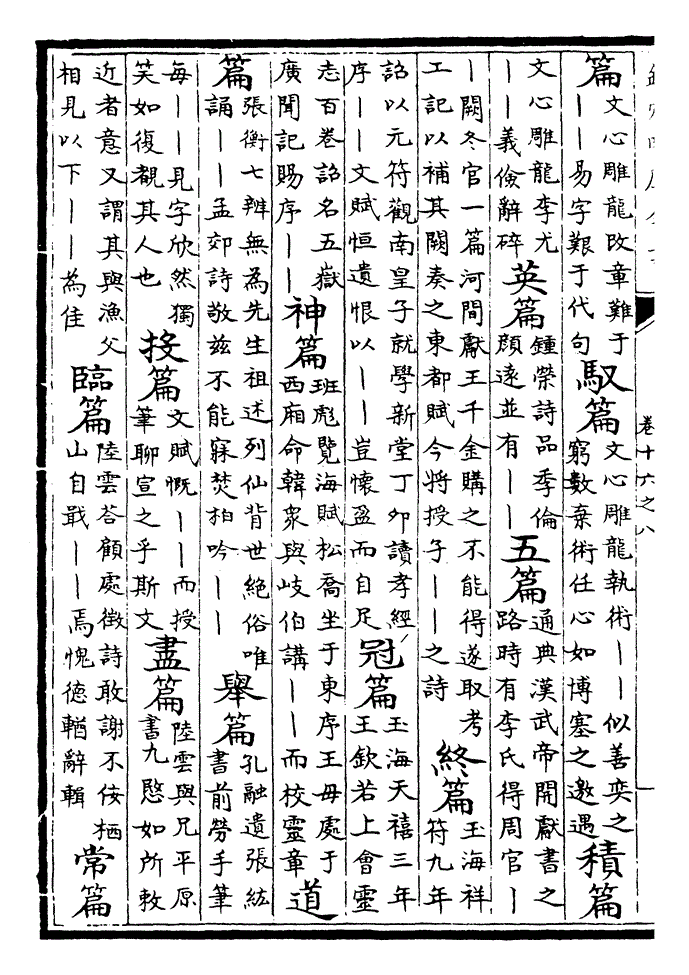 卷十六之八
篇
文心雕龍改章難于
丨丨易字艱于代句
馭篇
文心雕龍執術丨丨似善奕之
窮數棄術任心如博塞之邀遇
積篇
文心雕龍李尤
丨丨義儉辭碎
英篇
鍾榮詩品季倫
顔遠並有丨丨
五篇
通典漢武帝開獻書之
路時有李氏得周官丨
丨闕冬官一篇河間獻王千金購之不能得遂取考
工記以補其闕奏之東都賦今將授子丨丨之詩
終篇
玉海祥
符九年
詔以元符觀南皇子就學新堂丁卯讀孝經
序丨丨文賦恒遺恨以丨丨豈懷盈而自足
冠篇
玉海天禧三年
王欽若上會靈
志百巻詔名五嶽
廣聞記賜序丨丨
神篇
班彪覽海賦松喬坐于東序王毋處于
西廂命韓衆與岐伯講丨丨而校靈章
道
篇
張衡七辨無為先生祖述列仙背世絶俗唯
誦丨丨孟郊詩敬兹不能寐焚柏吟丨丨
舉篇
孔融遺張紘
書前勞手筆
毎丨丨見字欣然獨
笑如復覩其人也
投篇
文賦慨丨丨而授
筆聊宣之乎斯文
盡篇
陸雲與兄平原
書九愍如所敕
近者意又謂其與漁父
相見以下丨丨為佳
臨篇
陸雲荅顧處徵詩敢謝不佞栖
山自戢丨丨焉愧德輶辭輯
常篇